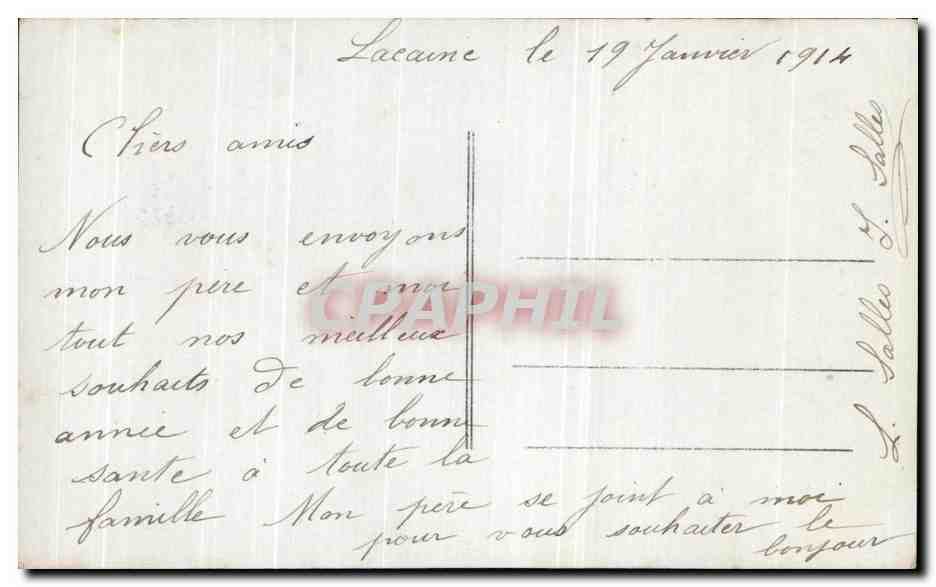 Lacaine le 19 Janvier 1914
Chers amis
Nous vous envoyons
mon père et moi
tout nos meilleux
souhaits de bonne
année et de bonne
sante à toute la
famille Mon père se joint à moi
pour vous souhaiter le
bonjour
L. Salles J. Salles
CPAPHIL